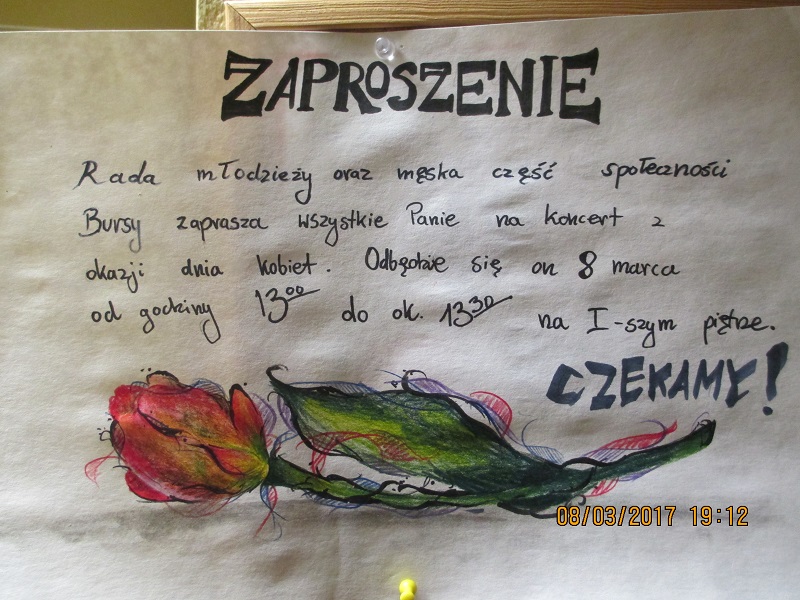 ZAPROSZENIE
Rada młodzieży oraz męska część społeczności
Bursy zaprasza wszystkie Panie na koncert z
okazji dnia kobiet. Odbędzie się on 8 marca
od godziny 13⁰⁰ do ok. 13³⁰ na I-szym piętrze.
CZEKAMY!
08/03/2017 19:12